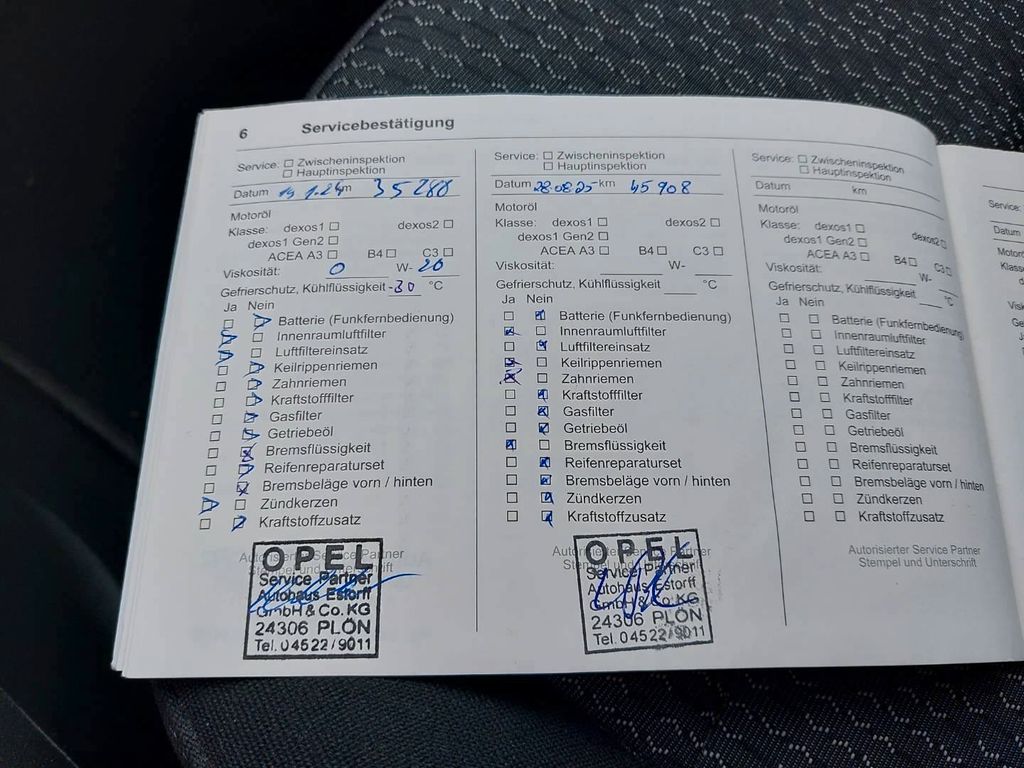 6 Servicebestätigung
Service: ☐ Zwischeninspektion
☐ Hauptinspektion
Datum km 35280
Motoröl
Klasse: dexos1 ☐ dexos2 ☐
dexos1 Gen2 ☐
ACEA A3 ☐ B4 ☐ C3 ☐
Viskosität: 0 W- 20
Gefrierschutz, Kühlflüssigkeit -30 °C
Ja Nein
Batterie (Funkfernbedienung)
Innenraumluftfilter
Luftfiltereinsatz
Keilrippenriemen
Zahnriemen
Kraftstofffilter
Gasfilter
Getriebeöl
Bremsflüssigkeit
Reifenreparaturset
Bremsbeläge vorn / hinten
Zündkerzen
Kraftstoffzusatz
Autorisierter Service Partner
Stempel und Unterschrift
OPEL
Service Partner
Autohaus Estorff
GmbH & Co. KG
24306 PLÖN
Tel. 04522/9011
Service: ☐ Zwischeninspektion
☐ Hauptinspektion
Datum 28.08.25 km 45908
Motoröl
Klasse: dexos1 ☐ dexos2 ☐
dexos1 Gen2 ☐
ACEA A3 ☐ B4 ☐ C3 ☐
Viskosität: W-
Gefrierschutz, Kühlflüssigkeit °C
Ja Nein
Batterie (Funkfernbedienung)
Innenraumluftfilter
Luftfiltereinsatz
Keilrippenriemen
Zahnriemen
Kraftstofffilter
Gasfilter
Getriebeöl
Bremsflüssigkeit
Reifenreparaturset
Bremsbeläge vorn / hinten
Zündkerzen
Kraftstoffzusatz
Autorisierter Service Partner
Stempel und
OPEL
Service Partner
Autohaus Estorff
GmbH & Co. KG
24306 PLÖN
Tel. 04522/9011
Service: ☐ Zwischeninspektion
☐ Hauptinspektion
Datum km
Motoröl
Klasse: dexos1 ☐ dexos2 ☐
dexos1 Gen2 ☐
ACEA A3 ☐ B4 ☐ C3 ☐
Viskosität: W-
Gefrierschutz, Kühlflüssigkeit °C
Ja Nein
Batterie (Funkfernbedienung)
Innenraumluftfilter
Luftfiltereinsatz
Keilrippenriemen
Zahnriemen
Kraftstofffilter
Gasfilter
Getriebeöl
Bremsflüssigkeit
Reifenreparaturset
Bremsbeläge vorn / hinten
Zündkerzen
Kraftstoffzusatz
Autorisierter Service Partner
Stempel und Unterschrift
Service:
Datum